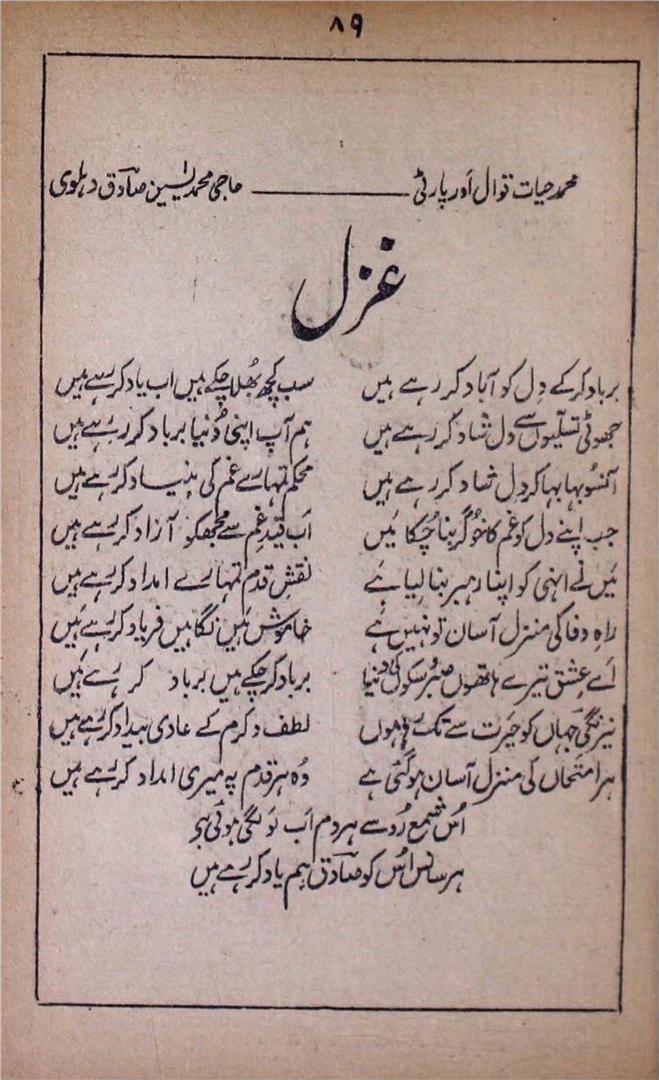 ۸۹
محمد حیات قوال اور پارٹی ——— حاجی محمد یٰسین صادق دہلوی
غزل
برباد کرکے دِل کو آباد کر رہے ہیں سب کچھ بُھلا چکے ہیں اب یاد کر رہے ہیں
جھوٹی تسلّیوں سے دل شاد کر رہے ہیں ہم آپ اپنی دُنیا برباد کر رہے ہیں
آنسُو بہا بہا کر دِل شاد کر رہے ہیں محکم تمہارے غم کی بنیاد کر رہے ہیں
جب اپنے دل کو غم کا خُوگر بنا چُکا مَیں اَب قیدِ غم سے مجھکو آزاد کر رہے ہیں
مَیں نے انہی کو اپنا رہبر بنا لیا ہَے نقشِ قدم تمہارے امداد کر رہے ہیں
راہِ وفا کی منزل آسان تو نہیں ہے خاموش ہَیں نگاہیں فریاد کر رہے ہَیں
اَے عِشق تیرے ہاتھوں صبر و سکوں کی دنیا برباد کر چکے ہیں برباد کر رہے ہَیں
نیرنگیِ جہاں کو حَیرت سے تک رہا ہوں لطف و کرم کے عادی بیداد کر رہے ہیں
ہر امتحاں کی منزل آسان ہو گئی ہے وُہ ہر قدم پہ میری امداد کر رہے ہیں
اُس شمع رُو سے ہر دم اَب لَو لگی ہوئی ہے
ہر سانس اُس کو صادق ہم یاد کر رہے ہیں